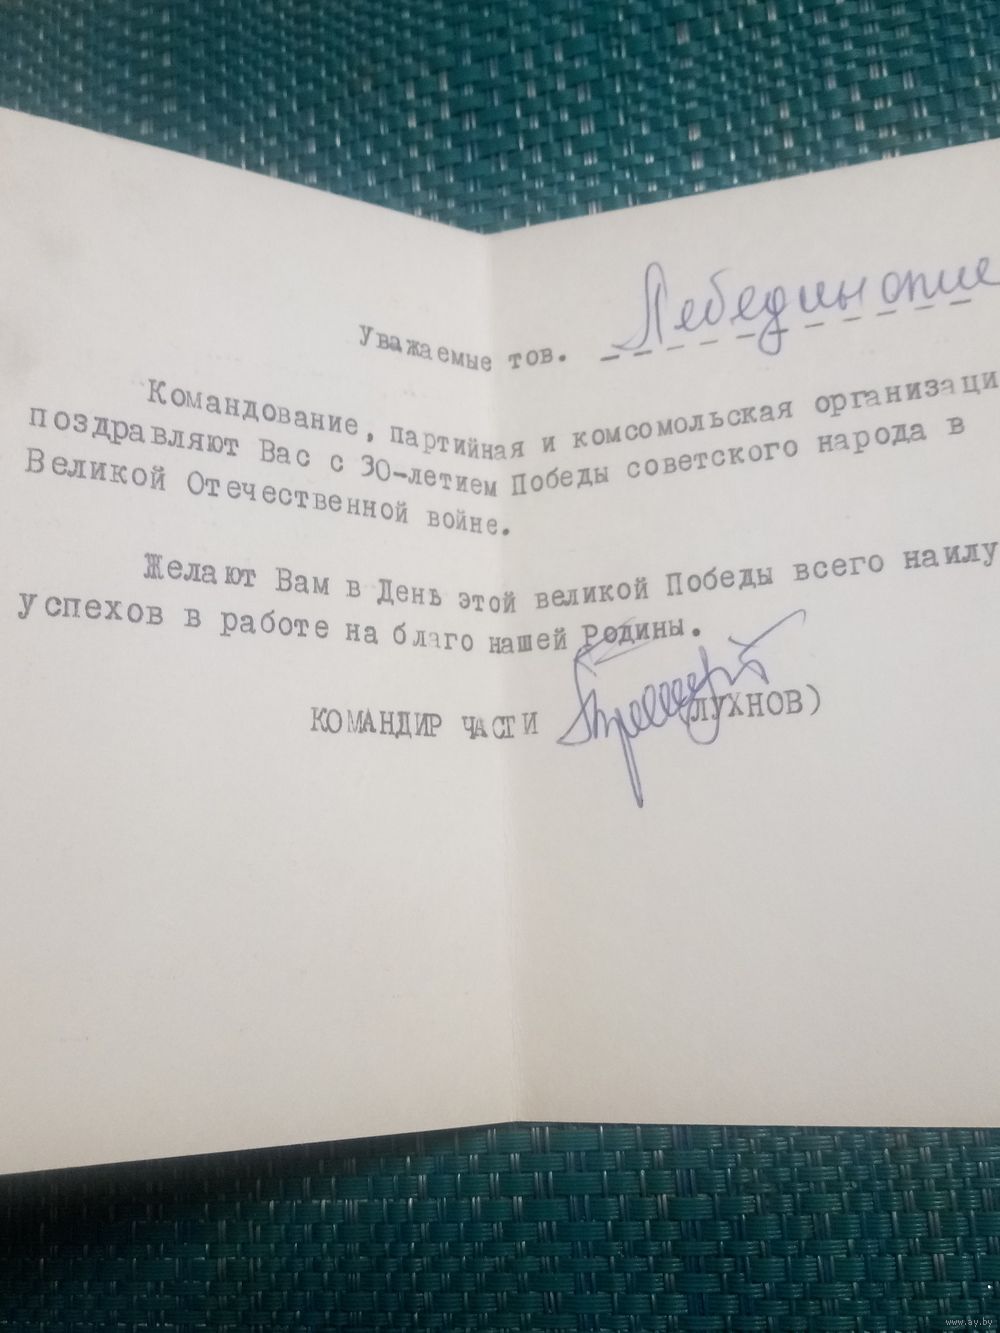 Уважаемые тов. Лебединские
Командование, партийная и комсомольская организаци
поздравляют Вас с 30-летием Победы советского народа в
Великой Отечественной войне.
Желают Вам в День этой великой Победы всего наилу
успехов в работе на благо нашей Родины.
КОМАНДИР ЧАСТИ (ЛУХНОВ)
www.ay.by